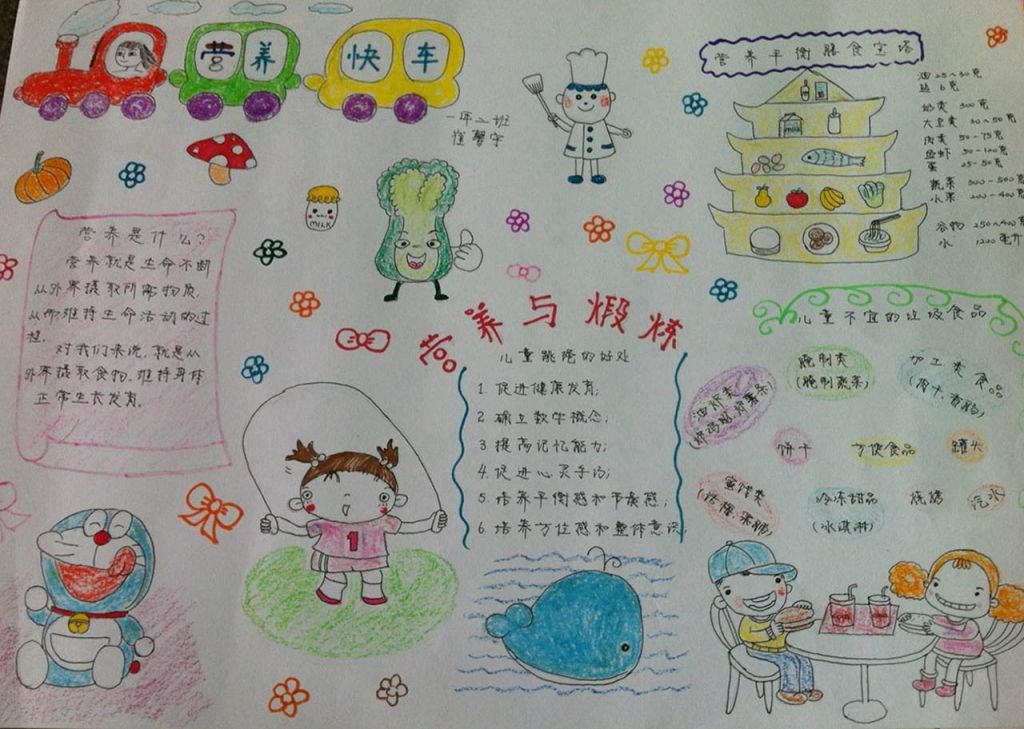 营养快车
一年二班
崔馨宇
MILK
营养平衡膳食宝塔
油 25~30克
盐 6克
奶类 300克
大豆类 30~50克
肉类 50-75克
鱼虾 50-100克
蛋 25-50克
蔬菜 300-500克
水果 200-400克
谷物 250~400克
水 1200毫升
营养是什么?
营养就是生命不断
从外界摄取所需物质,
从而维持生命活动的过
程。
对我们来说,就是从
外界摄取食物,维持身体
正常生长发育。
营养与煅炼
儿童跳绳的好处
1. 促进健康发育;
2 确立数字概念;
3 提高记忆能力;
4. 促进心灵手巧;
5. 培养平衡感和节奏感;
6. 培养方位感和整体意识。
1
儿童不宜的垃圾食品
油炸类
(炸鸡翅,炸薯条)
腌制类
(腌制蔬菜)
加工类食品
(肉干,香肠)
饼干
方便食品
罐头
蜜饯类
(话梅,果脯)
冷冻甜品
(冰淇淋)
烧烤
汽水